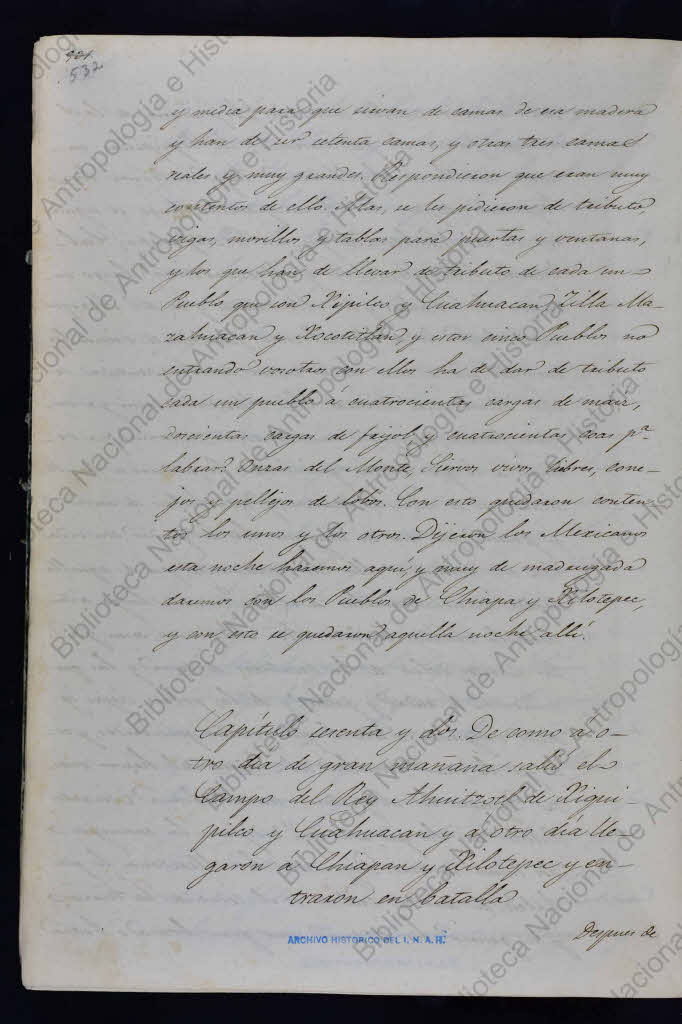 532
y media para que sirvan de camas de esa madera
y han de ser setenta camas, y otras tres camas
reales y muy grandes. Respondieron que eran muy
contentos de ello. Mas, se les pidieron de tributo
vigas, morillos y tablas para puertas y ventanas,
y los que han de llevar de tributo de cada un
Pueblo que son Xipilco y Cuahuacan Zilla Ma-
zahuacan y Xocotitlan, y estos cinco Pueblos no
entrando vosotros con ellos ha de dar de tributo
cada un pueblo á cuatrocientas cargas de maiz,
doscientas cargas de frijol, y cuatrocientas coas pa.
labrar. Onzas del Monte, Siervos vivos, libres, cone-
jos y pellejos de lobos. Con esto quedaron conten-
tos los unos y los otros. Dijeron los Mexicanos
esta noche haremos aquí, y muy de madrugada
daremos con los Pueblos de Chiapa y Xilotepec,
y con esto se quedaron aquella noche allí.
Capítulo sesenta y dos. De como á o-
tro dia de gran mañana salió el
Campo del Rey Ahuitzotl de Xiqui-
pilco y Cuahuacan y á otro dia lle-
garon á Chiapan y Xilotepec y en-
traron en batalla
Despues de
ARCHIVO HISTORICO DEL I. N. A. H.
Biblioteca Nacional de Antropología e Historia